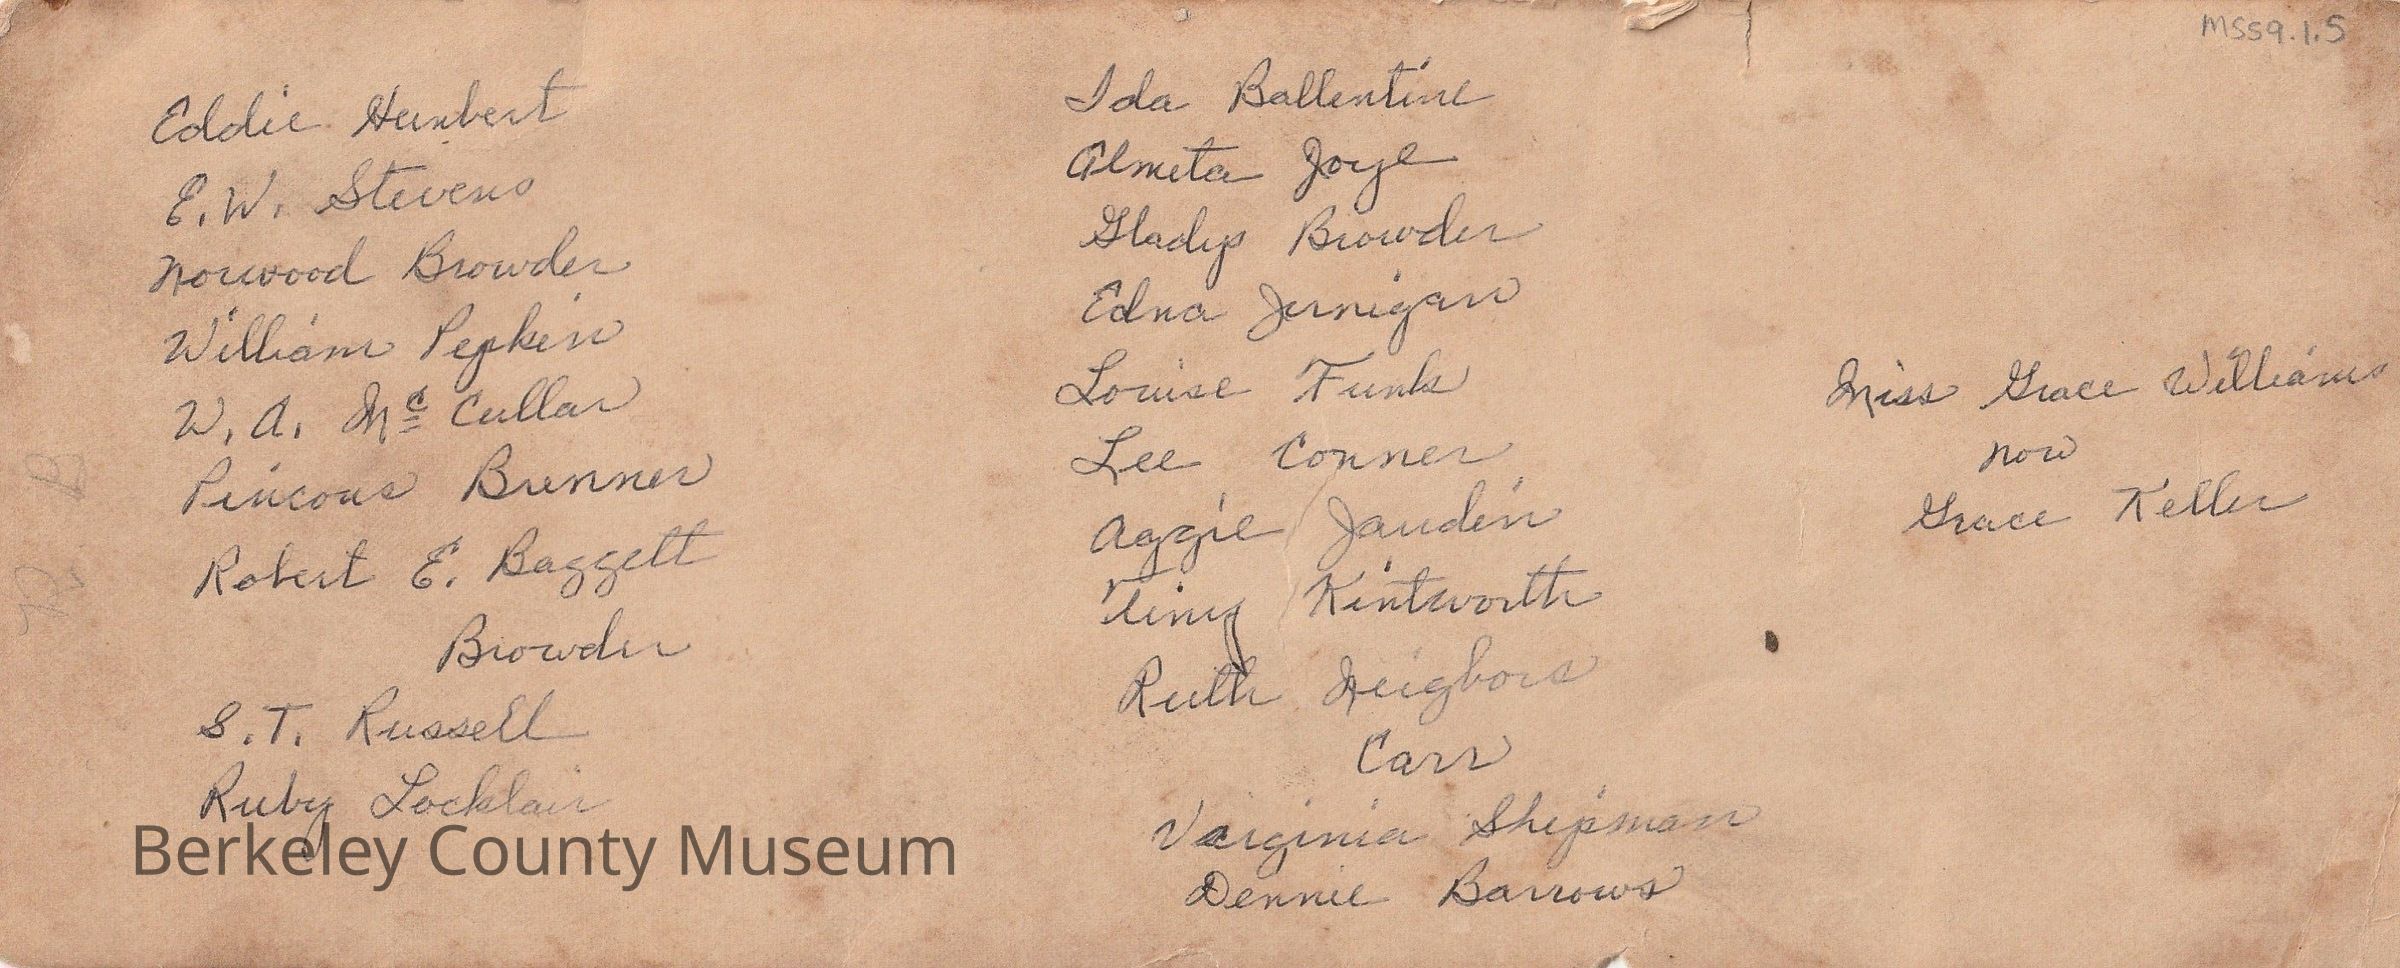 MSS9.1.5
Eddie Humbert
E.W. Stevens
Norwood Browder
William Pepkin
W. A. Mc Cullar
Pincous Brenner
Robert E. Baggett
Browder
S.T. Russell
Ruby Locklair
Ida Ballentine
Almeta Joye
Gladys Browder
Edna Jernigan
Louise Funk
Lee Conner
Aggie Jaudin
Tiny Kintworth
Ruth Neighbors
Carr
Virginia Shipman
Dennie Barrows
Miss Grace Williams
now
Grace Keller
Berkeley County Museum